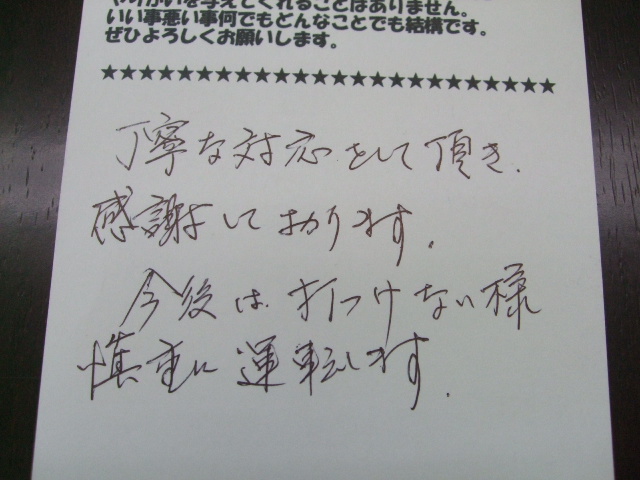 やりがいを与えてくれることはありません。
いい事悪い事何でもどんなことでも結構です。
ぜひよろしくお願いします。
★★★★★★★★★★★★★★★★★★★★★★★★★
丁寧な対応をして頂き、
感謝しております。
今後は、打つけない様
慎重に運転します。